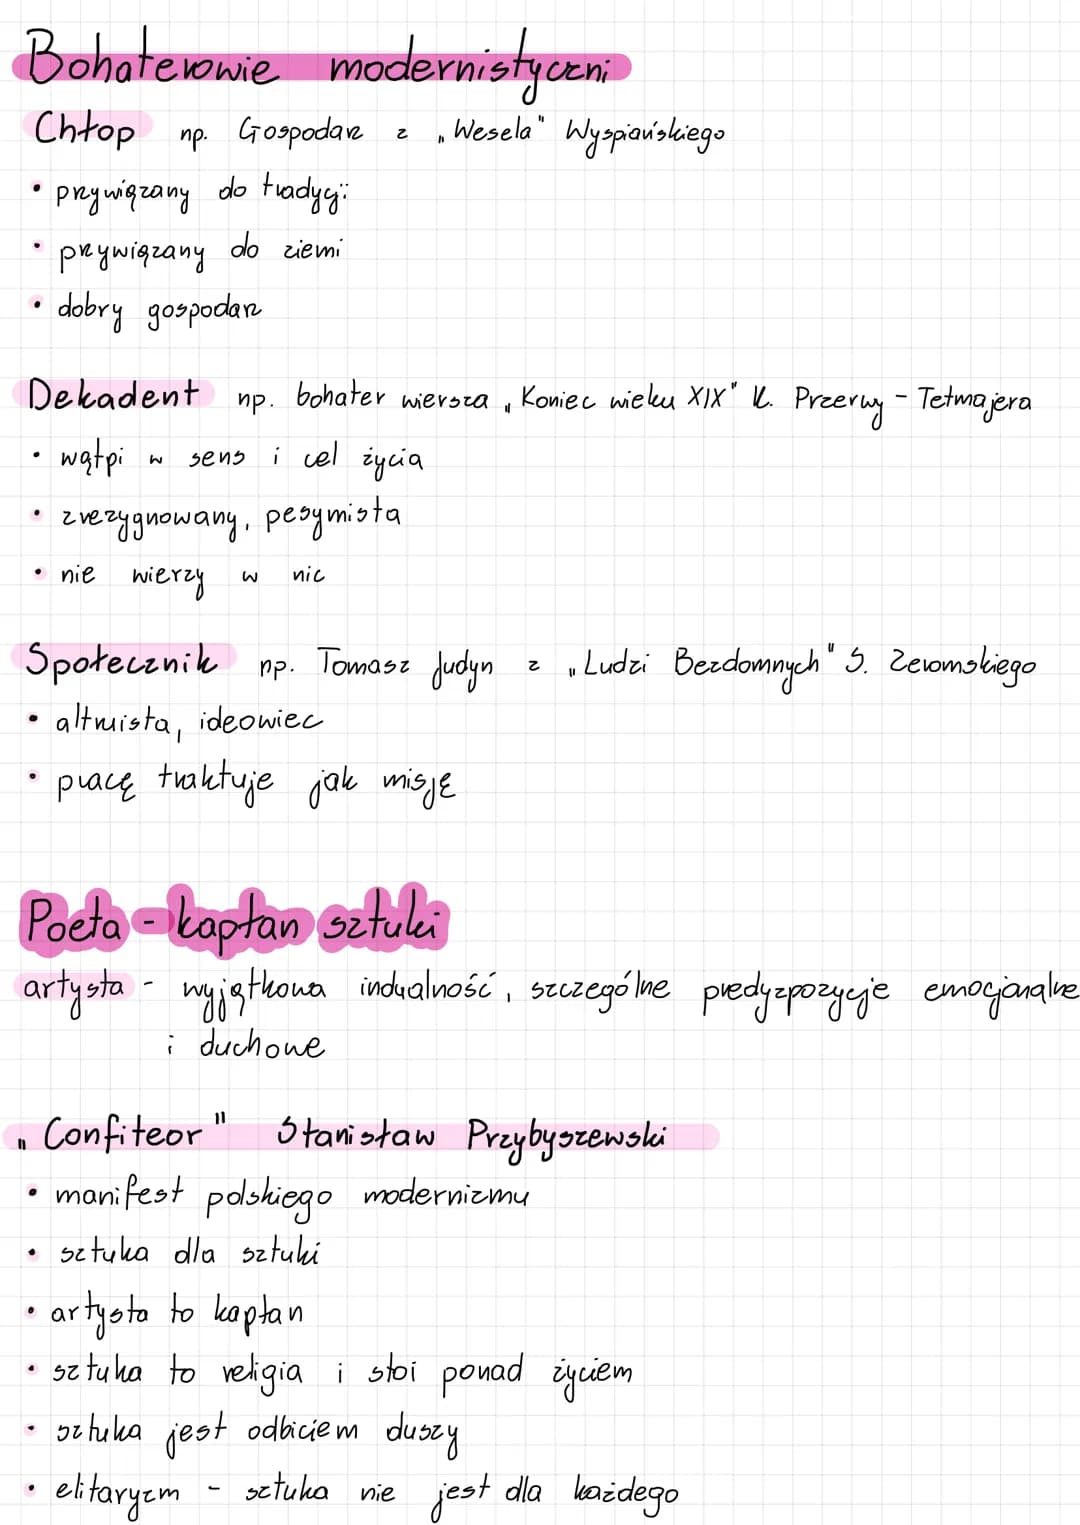 Bohaterowie modernistyczni
Chłop np. Gospodarz z „Wesela" Wyspiańskiego
• przywiązany do tradycji
• przywiązany do ziemi
• dobry gospodarz
Dekadent np. bohater wiersza „Koniec wieku XIX" K. Przerwy - Tetmajera
• wątpi w sens i cel życia
• zrezygnowany, pesymista
• nie wierzy w nic
Społecznik np. Tomasz Judyn z „Ludzi Bezdomnych" S. Żeromskiego
• altruista, ideowiec
• pracę traktuje jak misję
Poeta - kapłan sztuki
artysta - wyjątkowa indualność, szczególne predyzpozycje emocjonalne
i duchowe
„Confiteor" Stanisław Przybyszewski
• manifest polskiego modernizmu
• sztuka dla sztuki
• artysta to kapłan
• sztuka to religia i stoi ponad życiem
• sztuka jest odbiciem duszy
• elitaryzm - sztuka nie jest dla każdego